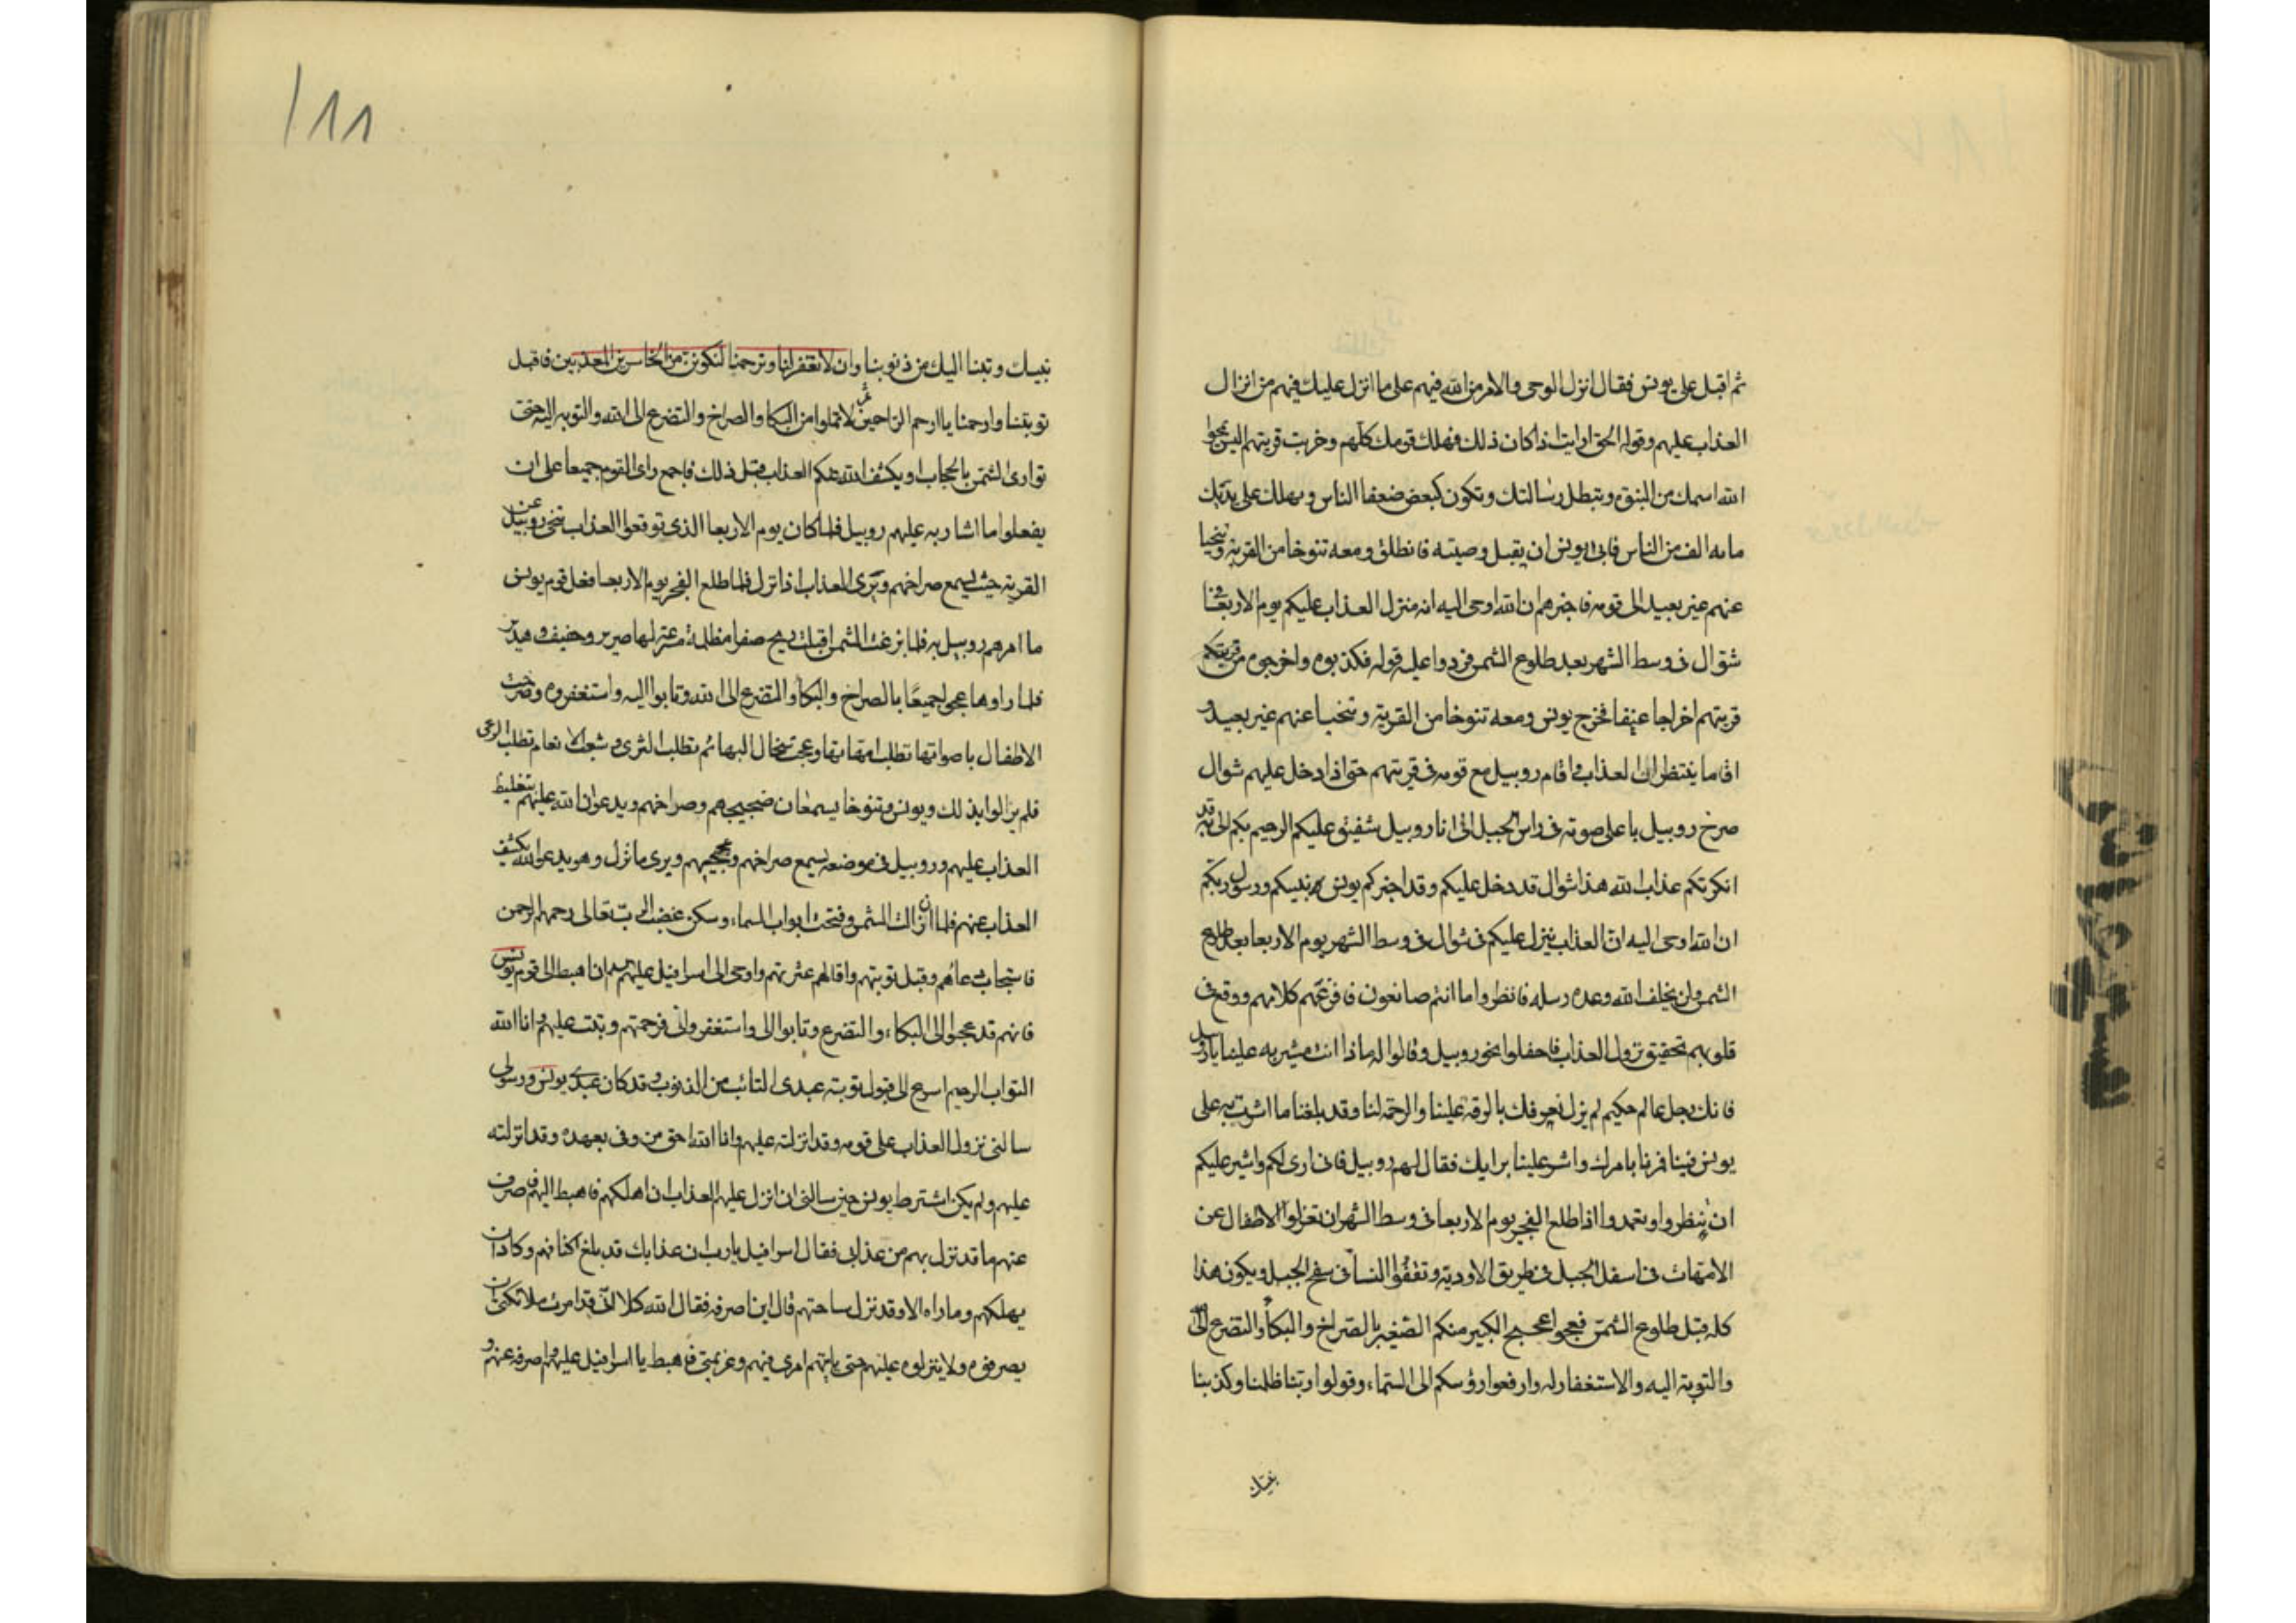 ثم اقبل على يونس فقال انزل الوحى والامر من الله فيهم على ما انزل عليك فيهم من انزال
العذاب عليهم وقوله الحق ارايت اذا كان ذلك فهلك قومك كلهم وخربت قريتهم اليس يمحوا
الله اسمك من النبوة وتبطل رسالتك وتكون كبعض ضعفا الناس ويهلك على يديك
مايه الف من الناس فابى يونس ان يقبل وصيته فانطلق ومعه تنوخا من القرية وتنحيا
عنهم غير بعيد الى قومه فاخبرهم ان الله اوحى اليه انه منزل العذاب عليكم يوم الاربعا فى
شوال فى وسط الشهر بعد طلوع الشمس فردوا عليه قوله فكذبوه واخرجوه من قريتكم
قريتهم اخراجا عنيفا فخرج يونس ومعه تنوخا من القرية وتنحيا عنهم غير بعيد و
اقاما ينتظران العذاب واقام روبيل مع قومه فى قريتهم حتى اذا دخل عليهم شوال
صرخ روبيل باعلى صوته فى راس الجبل انى انا روبيل شفيق عليكم الرحيم بكم الى ربه قد
انكرتكم عذاب الله هذا شوال قد دخل عليكم وقد اخبركم يونس نبيكم ورسول ربكم
ان الله اوحى اليه ان العذاب ينزل عليكم فى شوال فى وسط الشهر يوم الاربعا بعد طلوع
الشمس ولن يخلف الله وعده رسله فانظروا ما انتم صانعون فافزعهم كلامهم ووقع فى
قلوبهم تحقيق نزول العذاب فاحفلوا نحو روبيل وقالوا له ماذا انت مشير به علينا يا روبيل
فانك رجل عالم حكيم لم يزل نعرفك بالرقة علينا والرحمة لنا وقد بلغنا ما اشرت به على
يونس فينا فمرنا بامرك واشر علينا برايك فقال لهم روبيل فانى ارى لكم واشير عليكم
ان تنظروا وتعمدوا اذا طلع الفجر يوم الاربعا فى وسط الشهر ان تعزلوا الاطفال عن
الامهات فى اسفل الجبل فى طريق الاودية وتقفوا النسآ فى سفح الجبل ويكون هذا
كله قبل طلوع الشمس فعجوا عجيج الكبير منكم الصغير بالصراخ والبكا والتضرع الى الله
والتوبة اليه والاستغفار له وارفعوا رؤسكم الى السماء وقولوا ربنا ظلمنا وكذبنا
نبيك
نبيك وتبنا اليك من ذنوبنا وان لا تغفر لنا وترحمنا لنكونن من الخاسرين المعذبين فاقبل
توبتنا وارحمنا يا ارحم الراحمين ثم لا تملوا من البكا والصراخ والتضرع الى الله والتوبه اليه حتى
توارى الشمس بالحجاب او يكشف الله عنكم العذاب قبل ذلك فاجمع راى القوم جميعا على ان
يفعلوا ما اشار به عليهم روبيل فلما كان يوم الاربعا الذى توقعوا العذاب تنحى روبيل عن
القرية حيث يسمع صراخهم ويرى العذاب اذا نزل فلما طلع الفجر يوم الاربعا فعل قوم يونس
ما امرهم روبيل به فلما بزغت الشمس اقبلت ريح صفرا مظلمة مسرعة لها صرير وحفيف وهدير
فلما راوها عجوا جميعًا بالصراخ والبكا والتضرع الى الله وتابوا اليه واستغفروه وصرخت
الاطفال باصواتها تطلب امهاتها وعجت سخال البهائم تطلب الثرى وشعت الانعام تطلب الرعى
فلم يزالوا بذلك ويونس وتنوخا يسمعان ضجيجهم وصراخهم ويدعوان الله عليهم بتغليظ
العذاب عليهم وروبيل فى موضعه يسمع صراخهم وعجيجهم ويرى ما نزل وهو يدعو الله بكشف
العذاب عنهم فلما ان زالت الشمس وفتحت ابواب السماء وسكن غضب الرب تعالى رحمهم الرحمن
فاستجاب دعاهم وقبل توبتهم واقالهم عثرتهم واوحى الى اسرافيل عليه السلام ان اهبط الى قوم يونس
فانهم قد عجوا الى البكاء والتضرع وتابوا الى واستغفرونى فرحمتهم وتبت عليهم وانا الله
التواب الرحيم اسرع الى قبول توبة عبدى التائب من الذنوب وقد كان عبدى يونس ورسولى
سالنى نزول العذاب على قومه وقد انزلته عليهم وانا الله احق من وفى بعهده وقد انزلته
عليهم ولم يكن اشترط يونس حين سالنى ان انزل عليهم العذاب ان اهلكهم فاهبط اليهم فاصرف
عنهم ما قد نزل بهم من عذابى فقال اسرافيل يا رب ان عذابك قد بلغ اكتافهم وكاد ان
يهلكهم وما اراه الا وقد نزل بساحتهم قال اين اصرفه فقال الله كلا انى قد امرت ملائكتى ان
يصرفوه ولا ينزلوه عليهم حتى ياتيهم امرى فيهم وعزيمتى فاهبط يا اسرافيل عليهم واصرفه عنهم و